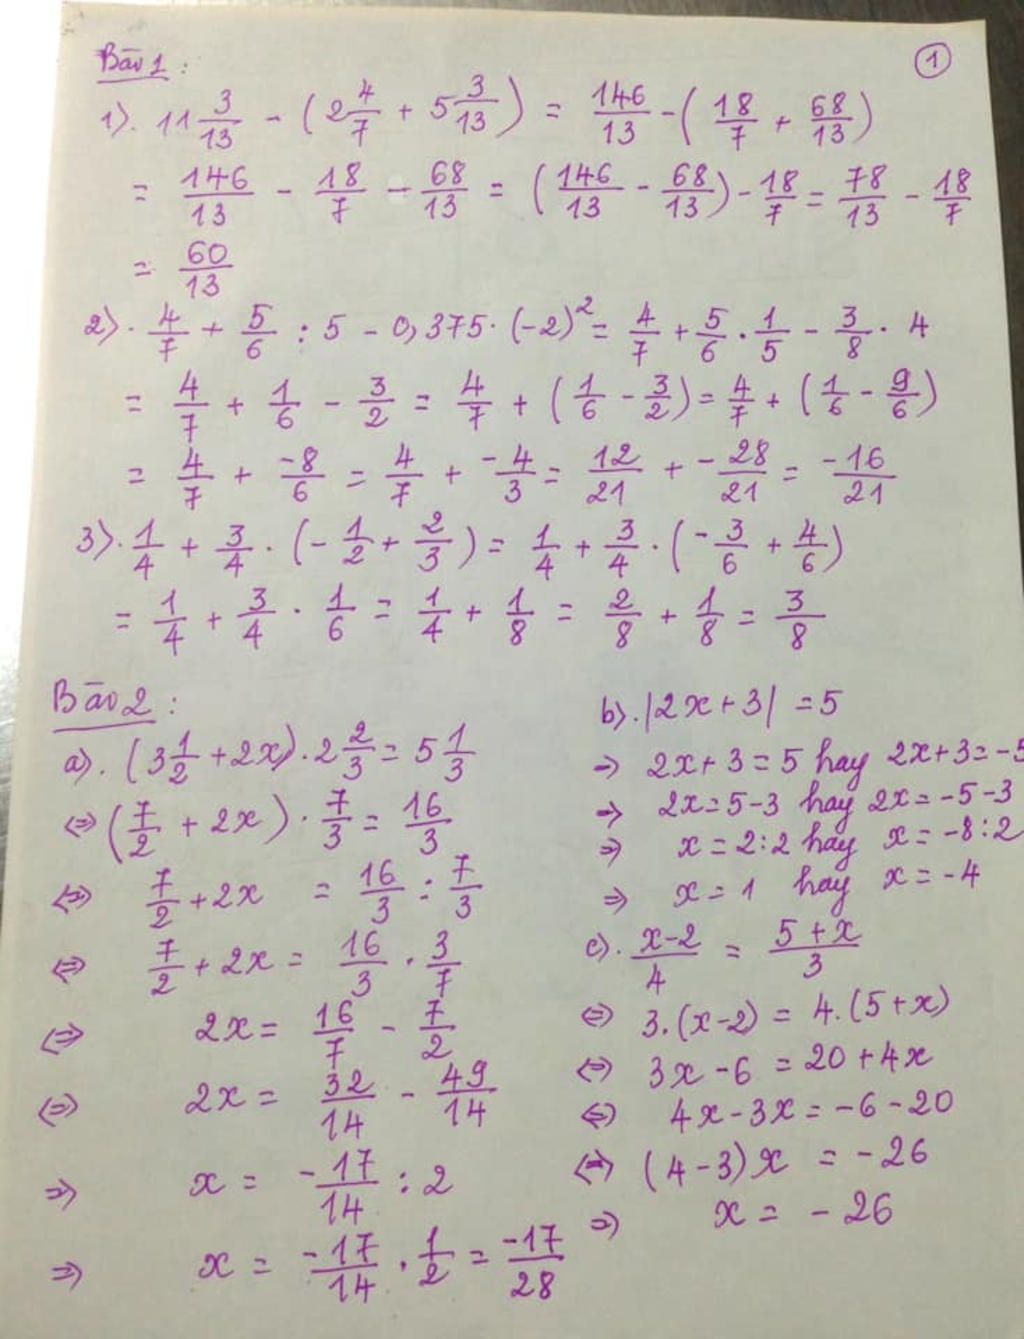 Bài 1 :
①
1). 11 3/13 - (2 4/7 + 5 3/13) = 146/13 - (18/7 + 68/13)
= 146/13 - 18/7 - 68/13 = (146/13 - 68/13) - 18/7 = 78/13 - 18/7
= 60/13
2). 4/7 + 5/6 : 5 - 0,375. (-2)² = 4/7 + 5/6 . 1/5 - 3/8 . 4
= 4/7 + 1/6 - 3/2 = 4/7 + (1/6 - 3/2) = 4/7 + (1/6 - 9/6)
= 4/7 + -8/6 = 4/7 + -4/3 = 12/21 + -28/21 = -16/21
3). 1/4 + 3/4 . (-1/2 + 2/3) = 1/4 + 3/4 . (-3/6 + 4/6)
= 1/4 + 3/4 . 1/6 = 1/4 + 1/8 = 2/8 + 1/8 = 3/8
Bài 2 :
a). (3 1/2 + 2x) . 2 2/3 = 5 1/3
⇔ (7/2 + 2x) . 7/3 = 16/3
⇔ 7/2 + 2x = 16/3 : 7/3
⇔ 7/2 + 2x = 16/3 . 3/7
⇔ 2x = 16/7 - 7/2
⇔ 2x = 32/14 - 49/14
⇒ x = -17/14 : 2
⇒ x = -17/14 . 1/2 = -17/28
b). |2x + 3| = 5
⇒ 2x + 3 = 5 hay 2x + 3 = -5
⇒ 2x = 5 - 3 hay 2x = -5 - 3
⇒ x = 2 : 2 hay x = -8 : 2
⇒ x = 1 hay x = -4
c). x-2/4 = 5+x/3
⇔ 3.(x-2) = 4.(5+x)
⇔ 3x - 6 = 20 + 4x
⇔ 4x - 3x = -6 - 20
⇔ (4-3)x = -26
⇒ x = -26